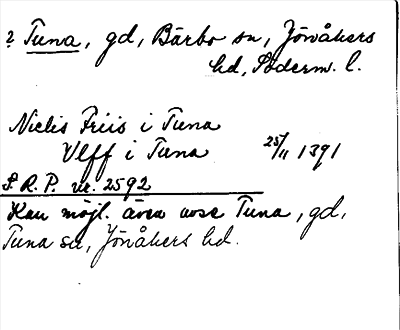 ? Tuna, gd, Bärbo sn, Jönåkers
hd, Söderm. l.
Niclis Friis i Tuna
Vlff i Tuna 25/11 1391
S.R.P. nr. 2592
Kan möjl. även avse Tuna, gd,
Tuna sn, Jönåkers hd.